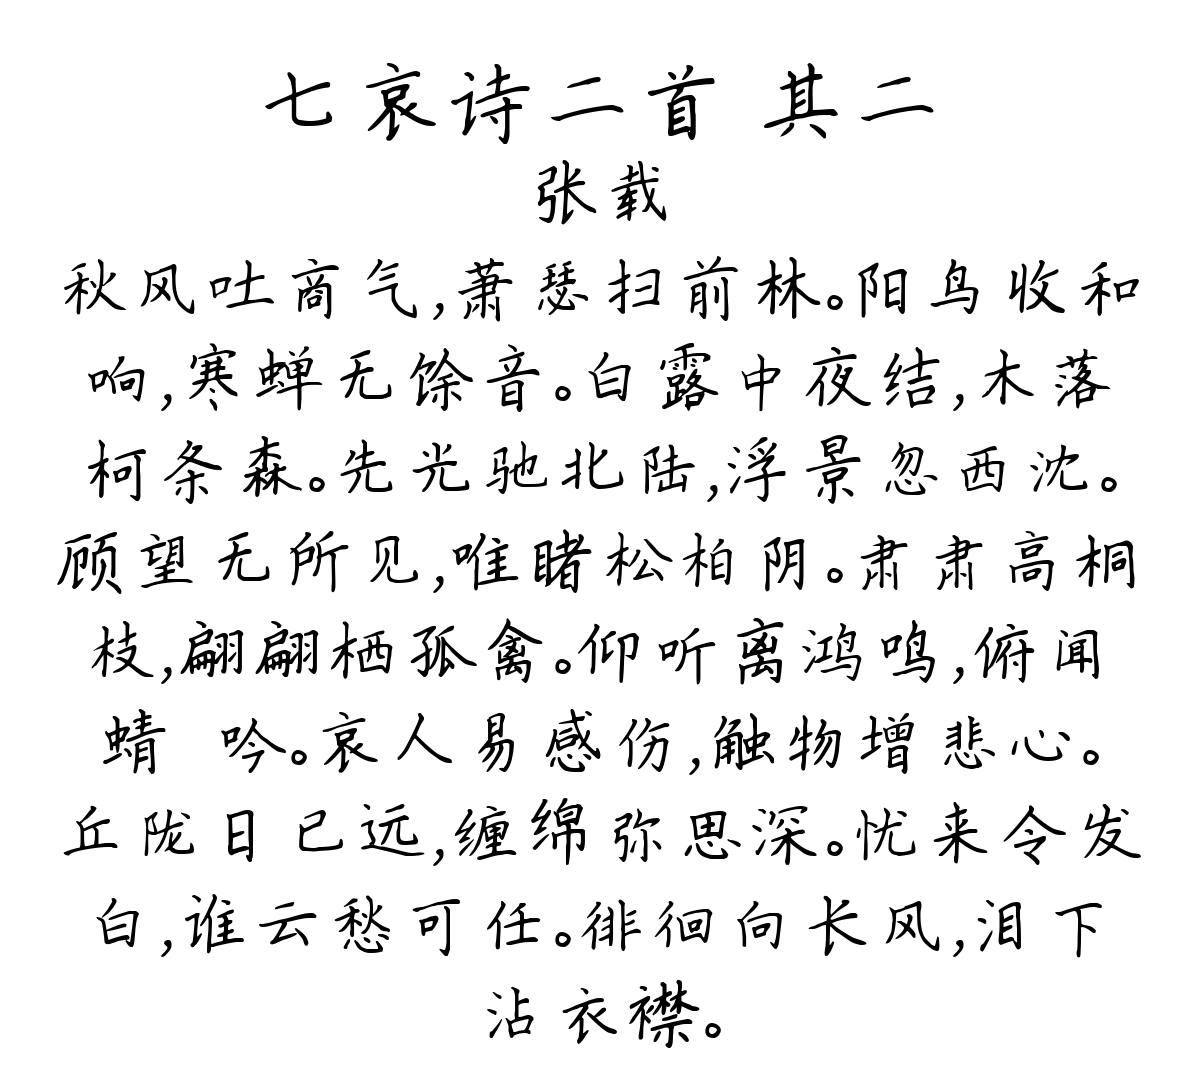 七哀诗二首 其二
张载
秋风吐商气,萧瑟扫前林。阳鸟收和
响,寒蝉无馀音。白露中夜结,木落
柯条森。朱光驰北陆,浮景忽西沈。
顾望无所见,唯睹松柏阴。肃肃高桐
枝,翩翩栖孤禽。仰听离鸿鸣,俯闻
蜻 吟。哀人易感伤,触物增悲心。
丘陇日已远,缠绵弥思深。忧来令发
白,谁云愁可任。徘徊向长风,泪下
沾衣襟。